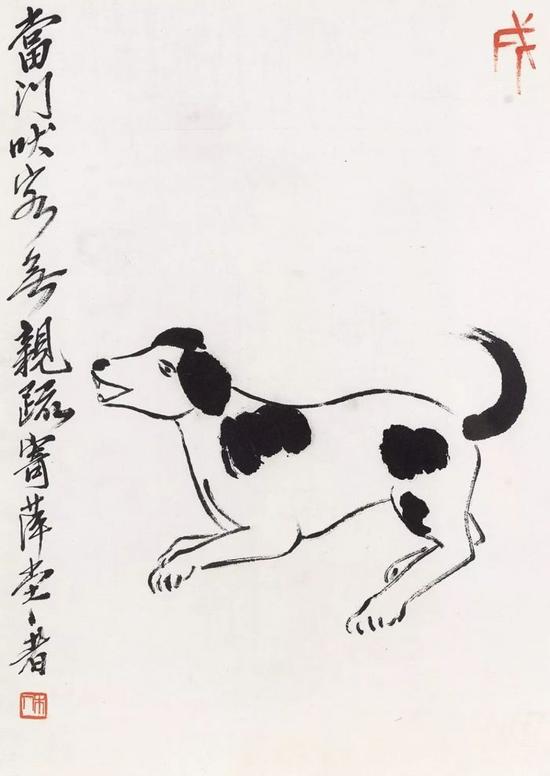 戌
當門吠客無親疏寄萍堂者
木人